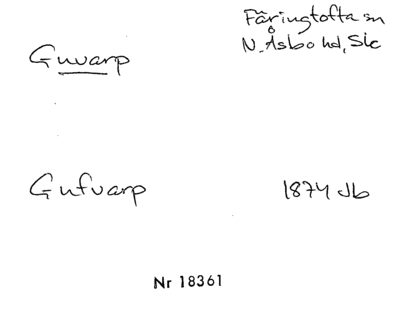 Guvarp
Färingtofta sn
N. Åsbo hd, Slc
Gufvarp
1874 Jb
Nr 18361